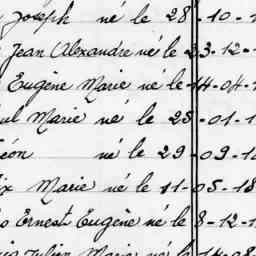 Joseph né le 28-10-1
Jean Alexandre né le 23-12-1
Eugène Marie né le 14-04-1
ul Marie né le 28-01-1
éon né le 29-09-1
ix Marie né le 11-05-18
Ernest Eugène né le 8-12-1
Julien Marie né le 14-08-1